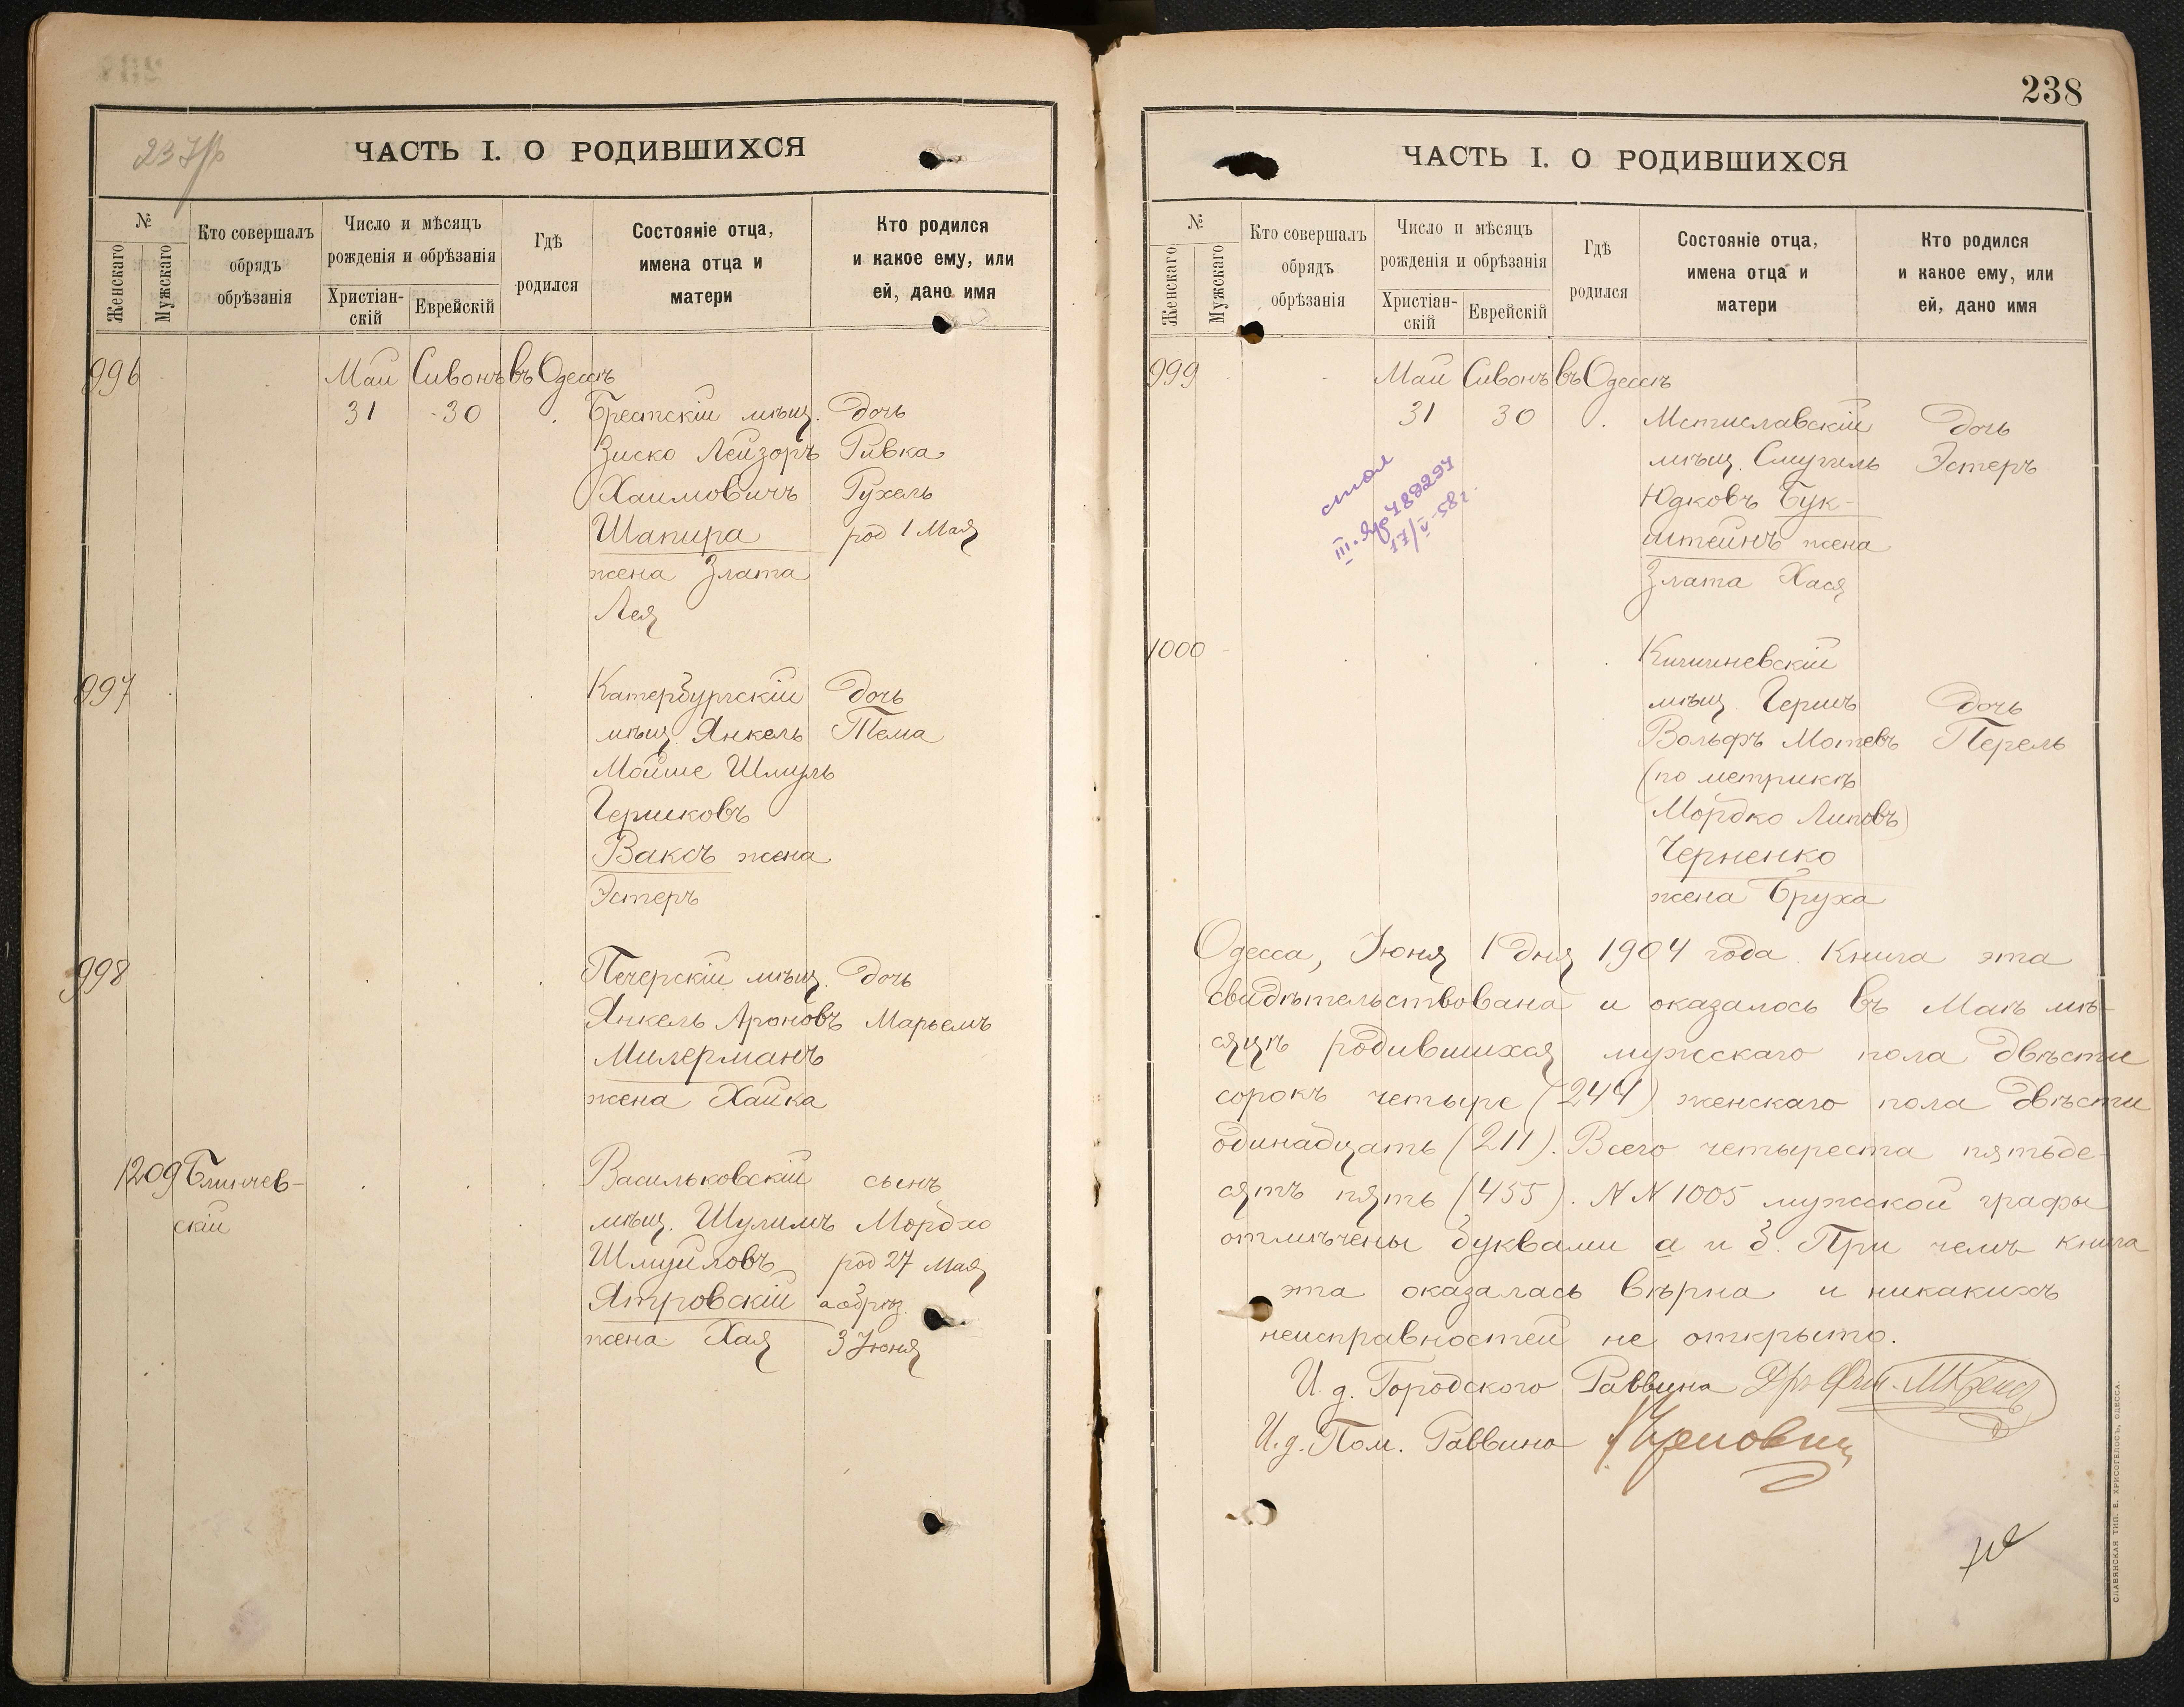 237/р
ЧАСТЬ I. О РОДИВШИХСЯ
№
Женскаго
Мужскаго
Кто совершалъ
обрядъ
обрѣзанія
Число и мѣсяцъ
рожденія и обрѣзанія
Христіан-
скій
Еврейскій
Гдѣ
родился
Состояніе отца,
имена отца и
матери
Кто родился
и какое ему, или
ей, дано имя
996 Май Сивонъ въ Одессѣ
31 30 Брестскій мѣщ. Дочь
Зиско Лейзоръ Ривка
Хаимовичъ Рухель
Шапира род 1 Мая
жена Злата
Лея
997 Катербургскій Дочь
мѣщ. Янкель Тема
Мойше Шмуль
Гершковъ
Ваксъ жена
Эстеръ
998 Печерскій мѣщ. Дочь
Янкель Ароновъ Марьемъ
Милерманъ
жена Хайка
1209 Блинчев- Васильковскій сынъ
скій мѣщ. Шулимъ Мордхо
Шмуйловъ род 27 Мая
Ятровскій а обрѣз.
жена Хая 3 Июня
238
ЧАСТЬ I. О РОДИВШИХСЯ
№
Женскаго
Мужскаго
Кто совершалъ
обрядъ
обрѣзанія
Число и мѣсяцъ
рожденія и обрѣзанія
Христіан-
скій
Еврейскій
Гдѣ
родился
Состояніе отца,
имена отца и
матери
Кто родился
и какое ему, или
ей, дано имя
999 Май Сивонъ въ Одессѣ
31 30 Мстиславскій Дочь
мѣщ. Смуиль Эстеръ
Юдковъ Бук-
штейнъ жена
Злата Хася
17/V-58г.
1000 Кишиневскій
мѣщ. Гершъ Дочь
Вольфъ Мотевъ Перель
(по метрикѣ
Мордко Липовъ)
Черненко
жена Бруха
Одесса, Июня 1 дня 1904 года. Книга эта
свидѣтельствована и оказалось въ Маѣ мѣ-
сяцѣ родившихся мужскаго пола двѣсти
сорокъ четыре (244) женскаго пола двѣсти
одинадцать (211). Всего четыреста пятьде-
сятъ пять (455). NN 1005 мужской графы
отмѣчены буквами а и б. При чемъ книга
эта оказалась вѣрна и никакихъ
неисправностей не открыто.
И. д. Городского Раввина
И. д. Пом. Раввина
СЛАВЯНСКАЯ ТИП. Е. ХРИСОГЕЛОСЪ, ОДЕССА.